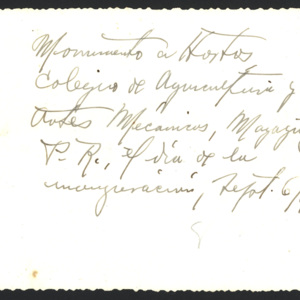 Monumento a Hostos,
Colegio de Agricultura y
Artes Mecánicas, Mayag
P. R., el día de la
inauguración, Sept. 6,